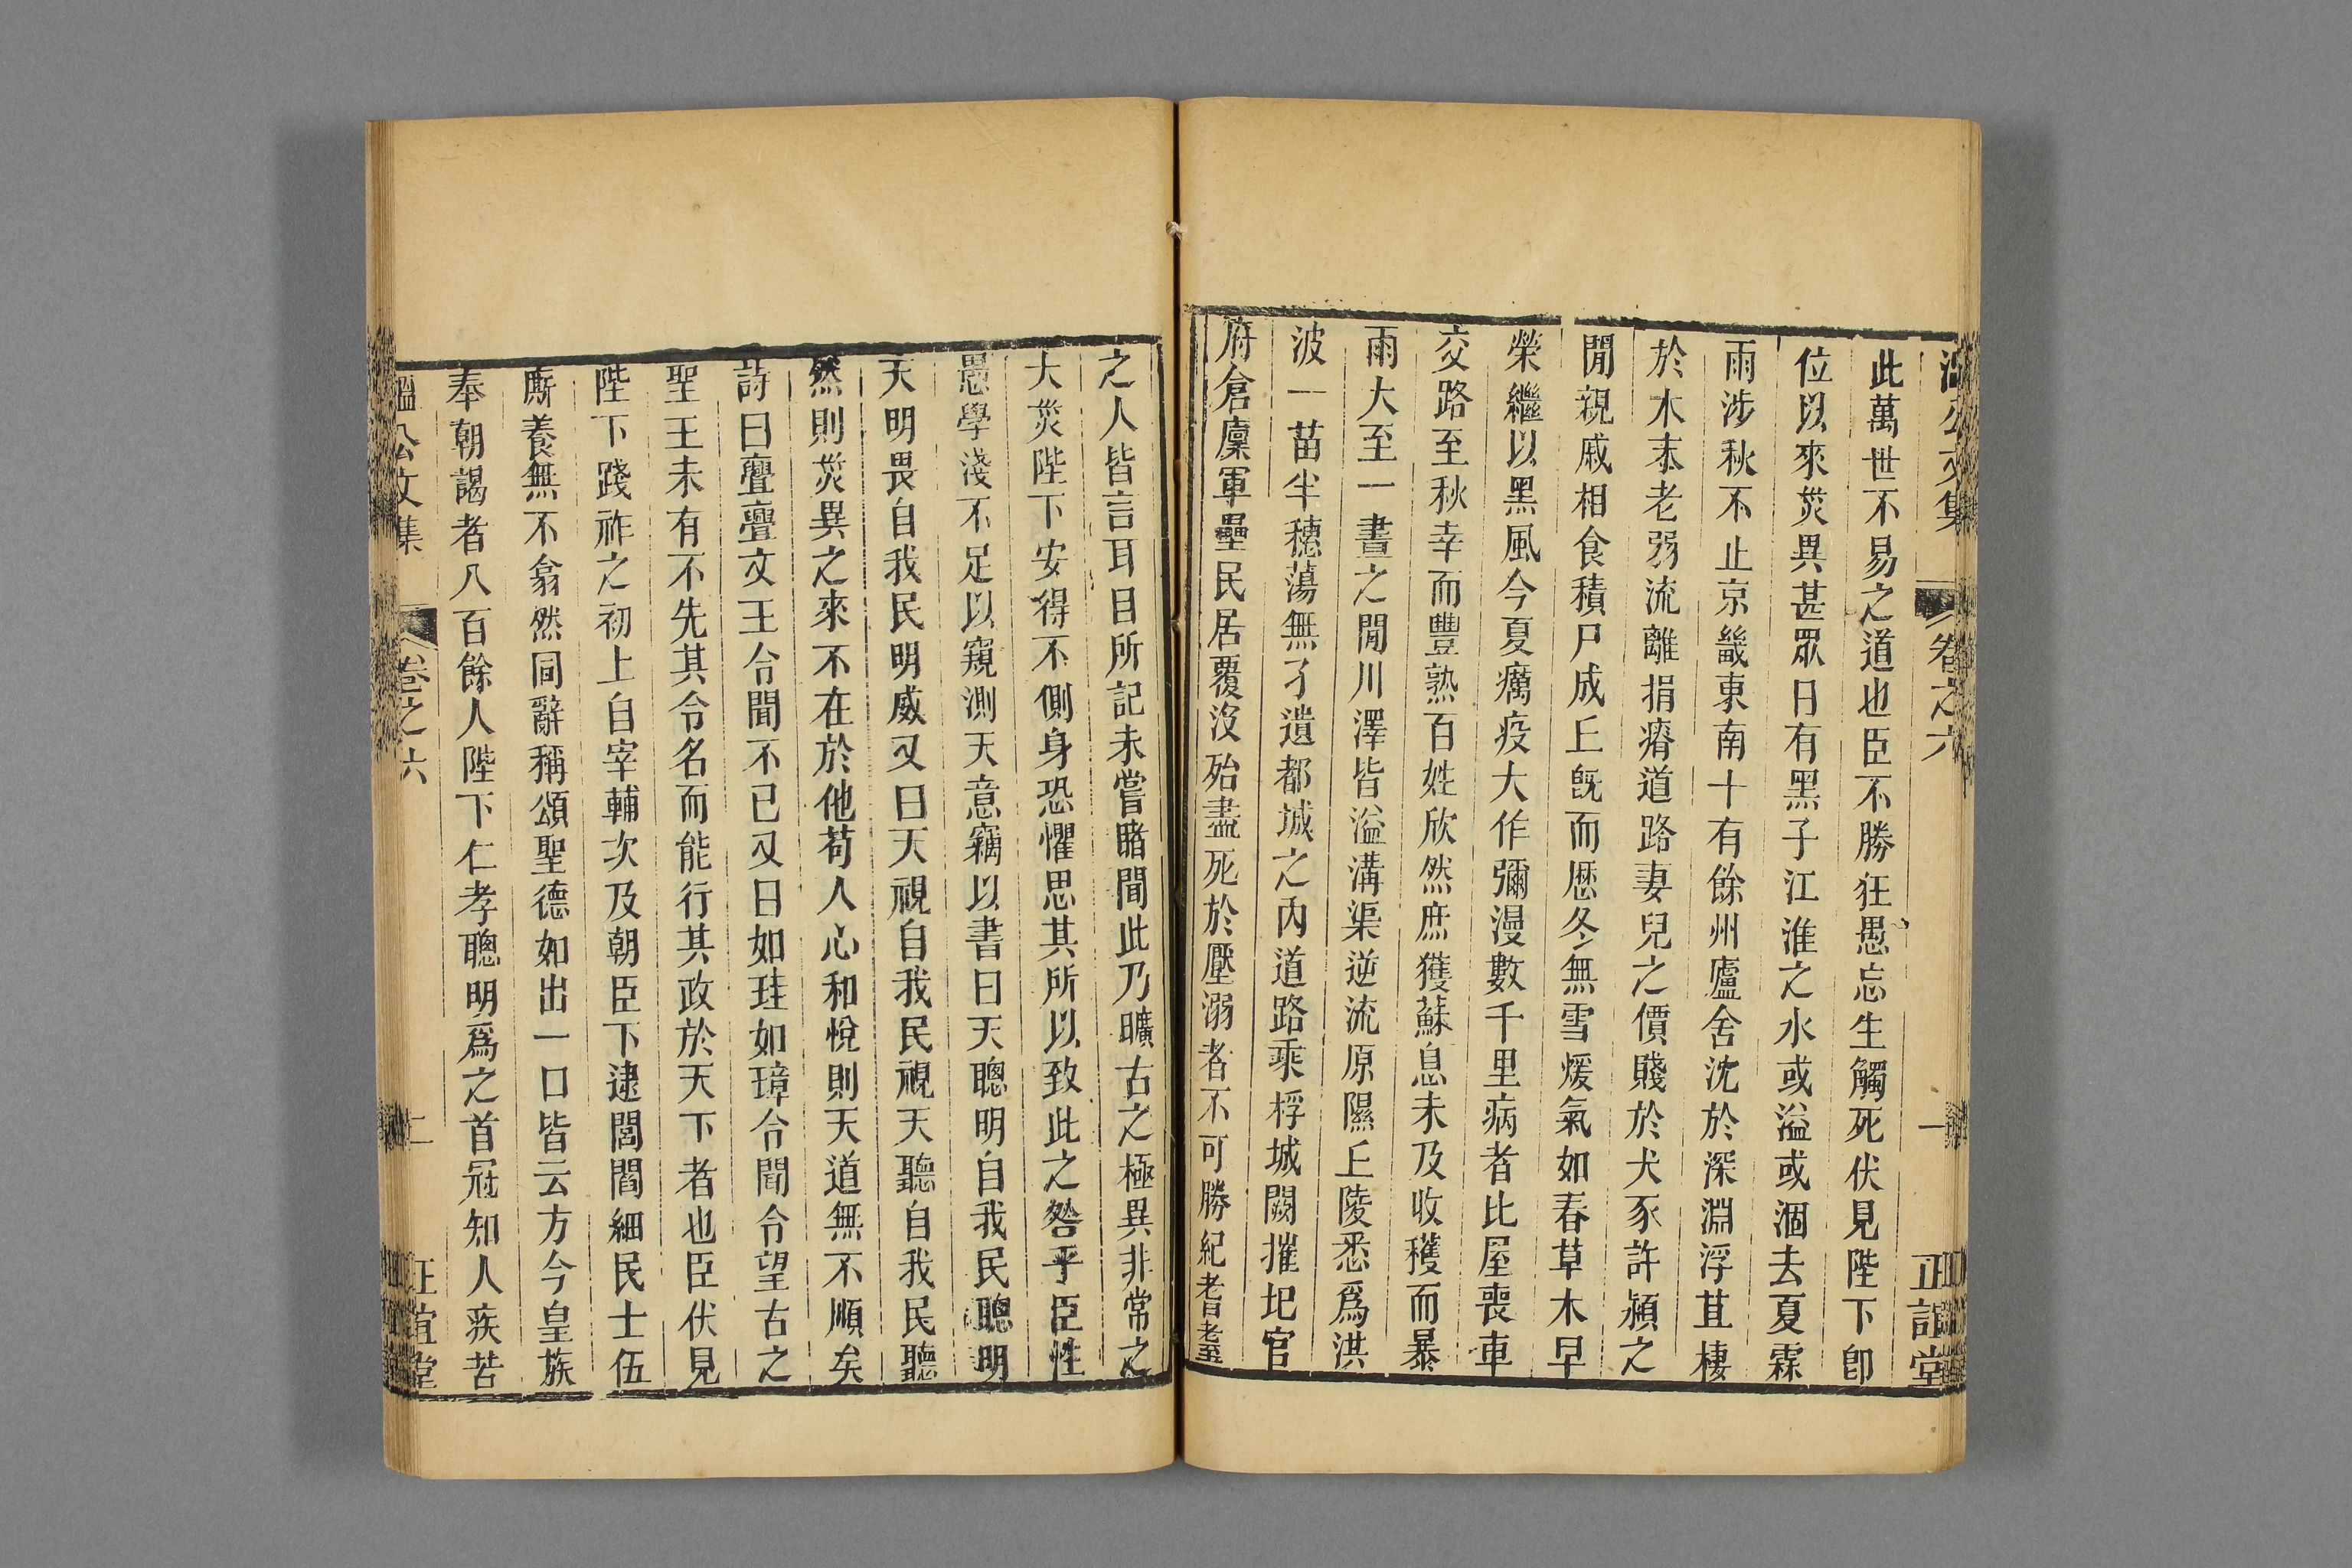 溫公文集 卷之六 一 正誼堂
此萬世不易之道也臣不勝狂愚忘生觸死伏見陛下卽
位以來災異甚眾日有黑子江淮之水或溢或涸去夏霖
雨涉秋不止京畿東南十有餘州廬舍沈於深淵浮苴棲
於木末老弱流離捐瘠道路妻兒之價賤於犬豕許潁之
閒親戚相食積尸成丘旣而歷冬無雪煖氣如春草木早
榮繼以黑風今夏癘疫大作彌漫數千里病者比屋喪車
交路至秋幸而豐熟百姓欣然庶獲蘇息未及收穫而暴
雨大至一晝之閒川澤皆溢溝渠逆流原隰丘陵悉爲洪
波一苗半穗蕩無孑遺都城之內道路乘桴城闕摧圮官
府倉廩軍壘民居覆沒殆盡死於壓溺者不可勝紀耆老至
之人皆言耳目所記未嘗睹聞此乃曠古之極異非常之
大災陛下安得不側身恐懼思其所以致此之咎乎臣性
愚學淺不足以窺測天意竊以書曰天聰明自我民聰明
天明畏自我民明威又曰天視自我民視天聽自我民聽
然則災異之來不在於他苟人心和悅則天道無不順矣
詩曰亹亹文王令聞不已又曰如珪如璋令聞令望古之
聖王未有不先其令名而能行其政於天下者也臣伏見
陛下踐祚之初上自宰輔次及朝臣下逮閭閻細民士伍
廝養無不翕然同辭稱頌聖德如出一口皆云方今皇族
奉朝謁者八百餘人陛下仁孝聰明爲之首冠知人疾苦
溫公文集 卷之六 二 正誼堂